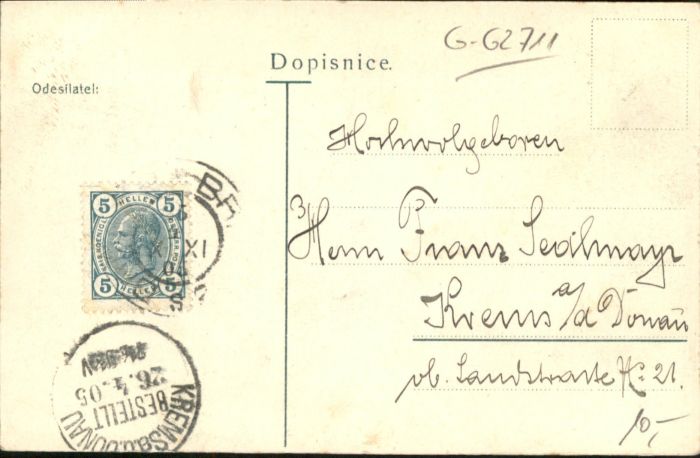 G-G2711
Dopisnice.
Odesílatel:
Hochwolgeboren
Herrn Franz Sedlmayr
Krems a/d Donau
ob. Landstraße No 21.
10,-
5 HELLER 5
5 HELLER 5
BR
XI
BESTELLT
26.4.05
KREMS a.d. DONAU